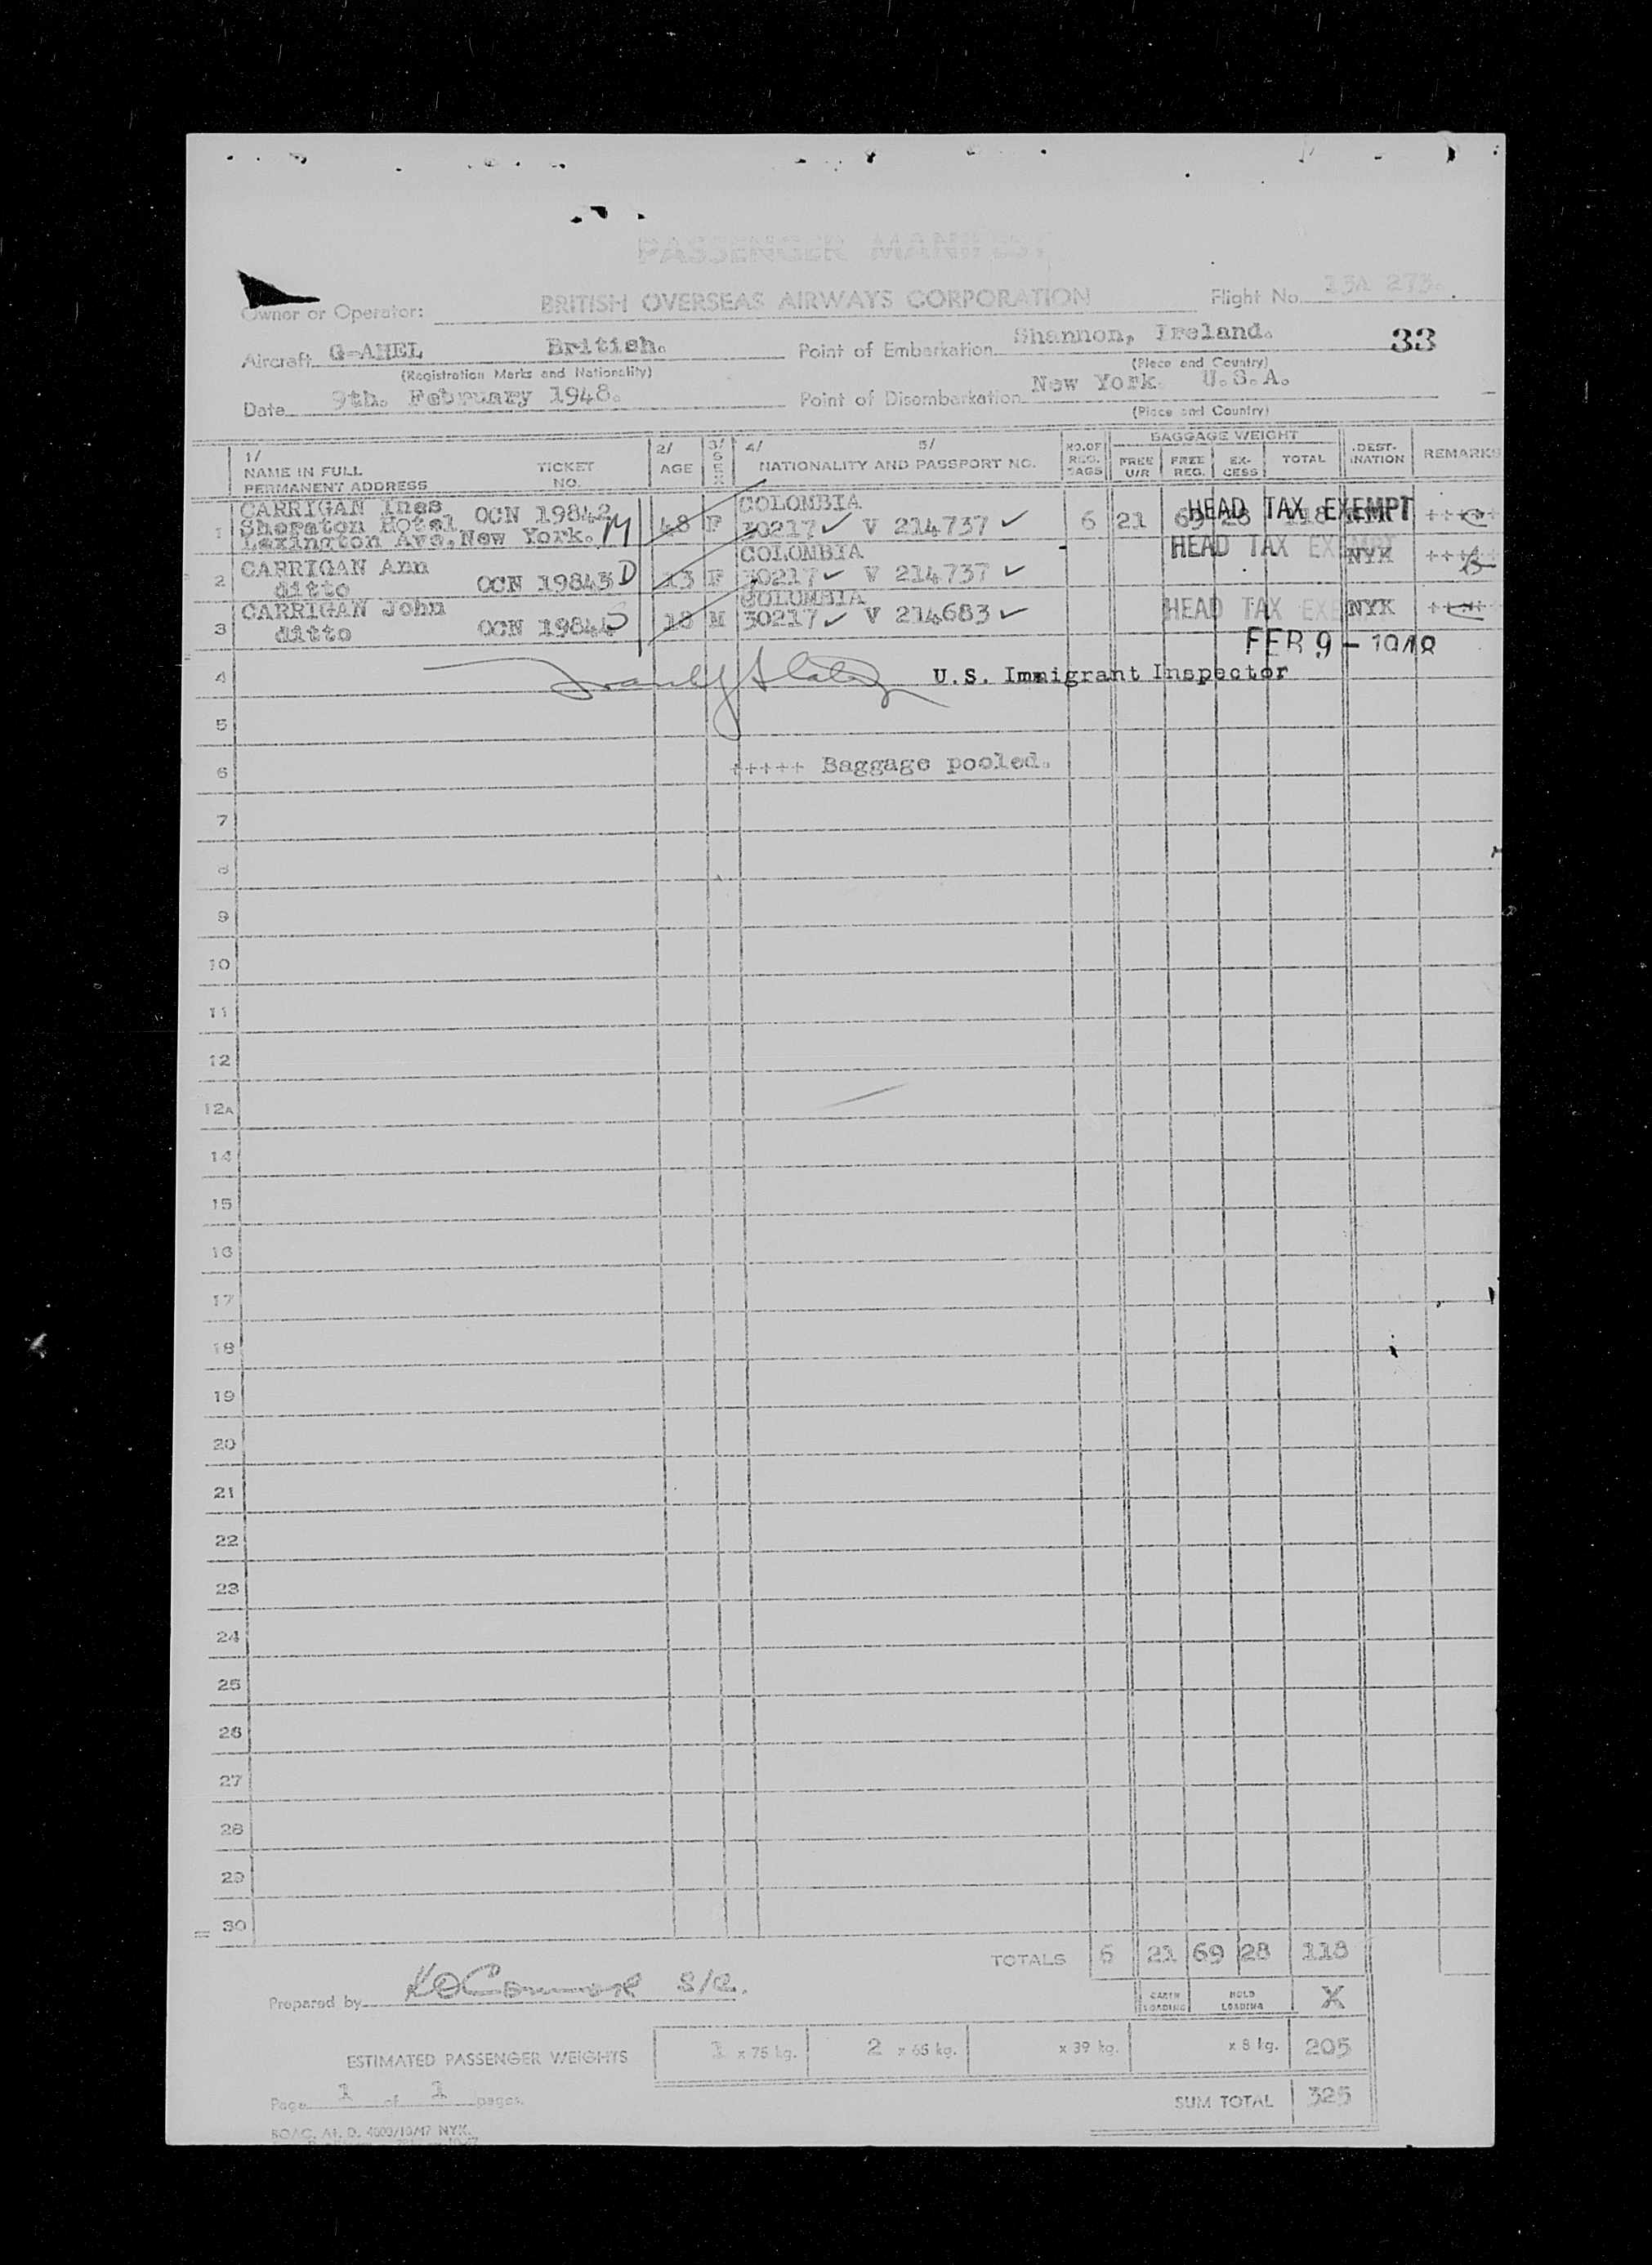 PASSENGER MANIFEST
Owner or Operator: BRITISH OVERSEAS AIRWAYS CORPORATION Flight No. 
Aircraft G-AHEL British. Point of Embarkation Shannon, Ireland. 33
(Registration Marks and Nationality) (Place and Country)
Date 9th. February 1948. Point of Disembarkation New York. U.S.A.
(Place and Country)
1/ NAME IN FULL PERMANENT ADDRESS TICKET NO. 2/ AGE 3/ SEX 4/ 5/ NATIONALITY AND PASSPORT NO. NO. OF REG. BAGS BAGGAGE WEIGHT FREE U/R FREE REG. EX-CESS TOTAL DEST-INATION REMARKS
CARRIGAN Ines COLOMBIA
1 Sheraton Hotel OCN 19842 M 48 F 30217 ✓ V 214737 ✓ 6 21 69 28 118 NYK HEAD TAX EXEMPT +++++
Lexington Ave, New York.
CARRIGAN Ann COLOMBIA HEAD TAX EXEMPT NYK +++++
2 ditto OCN 19843 D 13 F 30217 ✓ V 214737 ✓
CARRIGAN John COLOMBIA HEAD TAX EXEMPT NYK +++++
3 ditto OCN 19844 S 18 M 30217 ✓ V 214683 ✓
FEB 9 - 1948
4 U.S. Immigrant Inspector
5
6 +++++ Baggage pooled.
7
8
9
10
11
12
12A
14
15
16
17
18
19
20
21
22
23
24
25
26
27
28
29
30
TOTALS 6 21 69 28 118
Prepared by S/C. CABIN LOADING HOLD LOADING X
ESTIMATED PASSENGER WEIGHTS 1 x 75 kg. 2 x 65 kg. x 39 kg. x 8 kg. 205
Page 1 of 1 pages. SUM TOTAL 325